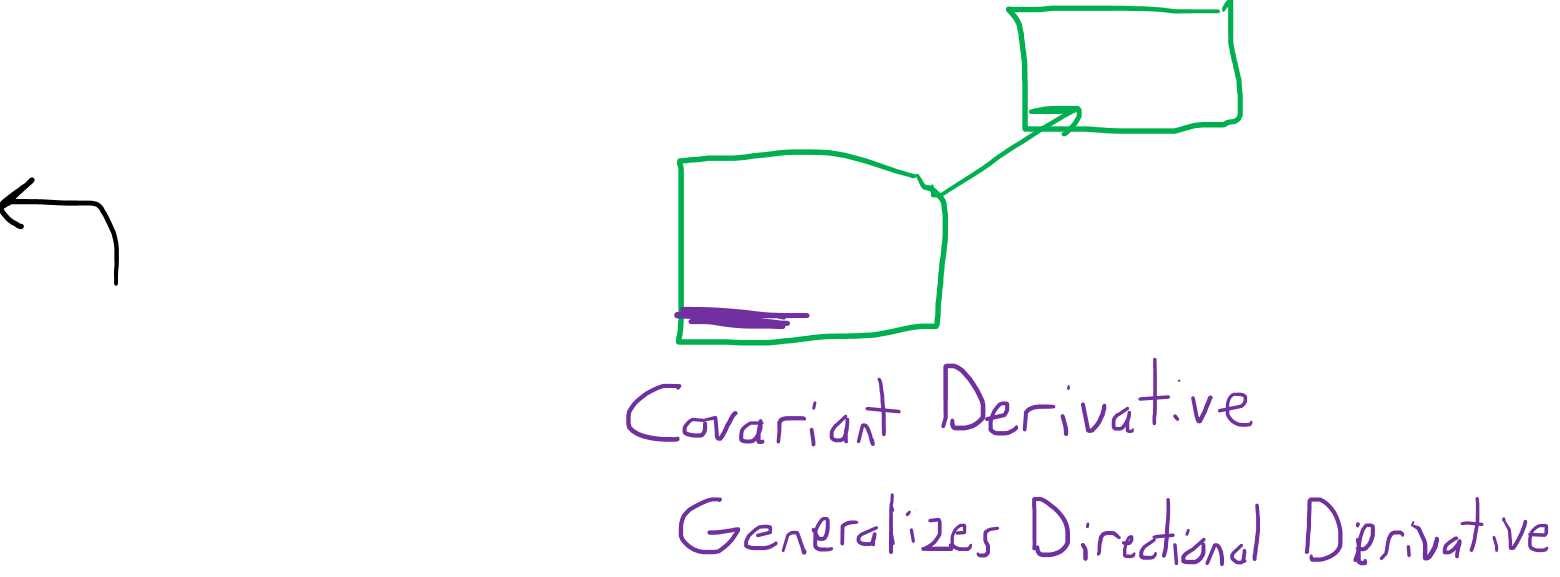 Covariant Derivative
Generalizes Directional Derivative